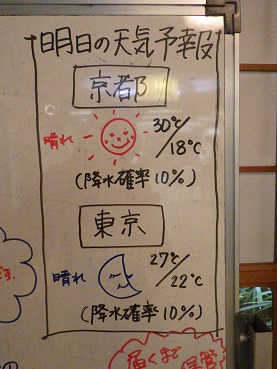 明日の天気予報
京都
晴れ
30℃/
18℃
(降水確率10%)
東京
晴れ
27℃/
22℃
(降水確率10%)
届くまで
保管
す.